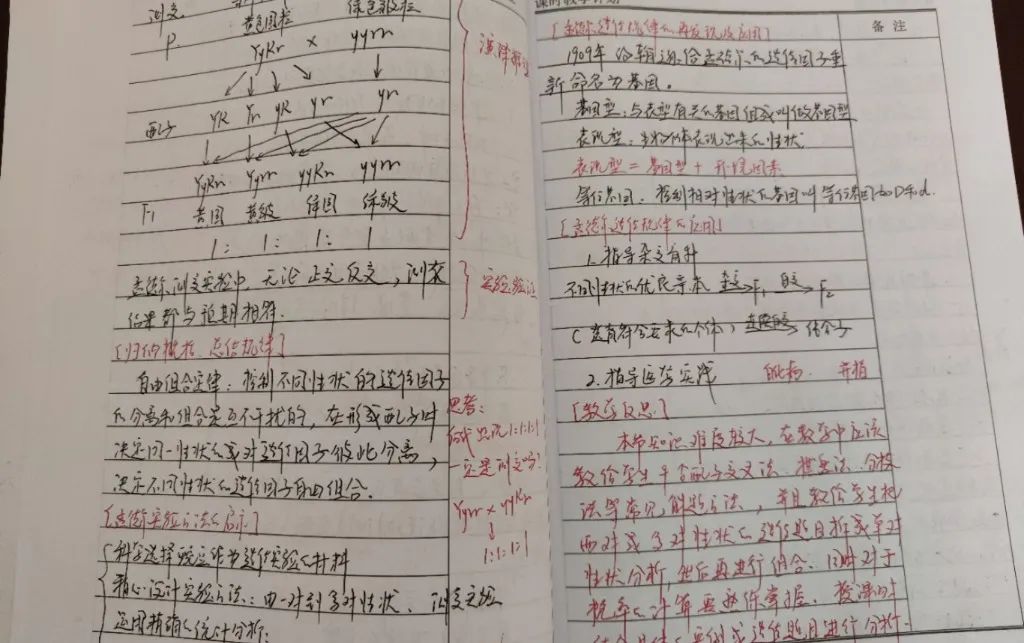 测交
黄色圆粒 绿色皱粒
P YyRr × yyrr
配子 YR Yr yR yr yr
YyRr Yyrr yyRr yyrr
F₁ 黄圆 黄皱 绿圆 绿皱
1: 1: 1: 1
演绎推理
孟德尔测交实验中,无论正交反交,测交
结果都与预期相符.
实验验证
[归纳概括 总结规律]
自由组合定律:控制不同性状的遗传因子
的分离和组合是互不干扰的,在形成配子时
决定同一性状的成对遗传因子彼此分离,
决定不同性状的遗传因子自由组合.
思考:
后代出现1:1:1:1
一定是测交吗?
Yyrr × yyRr
↓
1:1:1:1
[孟德尔实验方法的启示]
科学选择豌豆作为遗传实验的材料
精心设计实验方法:由一对到多对性状. 测交实验
运用精确的统计分析:
课时教学计划
备注
[孟德尔遗传规律的再发现及应用]
1909年 约翰逊给孟德尔的遗传因子重
新命名为基因。
基因型:与表型有关的基因组成叫做基因型
表现型:生物个体表现出来的性状
表现型 = 基因型 + 环境因素
等位基因. 控制相对性状的基因叫等位基因如D和d.
[孟德尔遗传规律的应用]
1. 指导杂交育种
不同性状的优良亲本 杂交→F₁ 自交→F₂
(选育符合要求的个体) 连续自交→
2. 指导医学实践
[教学反思]
本节知识难度较大,在教学中应该
教给学生 配子交叉法. 棋盘法. 分枝
法等常见解题方法,并且教给学生把
两对或多对性状的遗传题目拆成单对
性状分析,然后再进行组合. 同时对于
概率的计算要 掌握. 授课时
遗传题目进行分析.